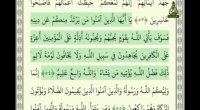 جَهْدَ أَيْمَانِهِمْ إِنَّهُمْ لَمَعَكُمْ حَبِطَتْ أَعْمَالُهُمْ فَأَصْبَحُوا
خَاسِرِينَ ﴿٥٣﴾ يَا أَيُّهَا الَّذِينَ آمَنُوا مَن يَرْتَدَّ مِنكُمْ عَن دِينِهِ
فَسَوْفَ يَأْتِي اللَّهُ بِقَوْمٍ يُحِبُّهُمْ وَيُحِبُّونَهُ أَذِلَّةٍ عَلَى الْمُؤْمِنِينَ أَعِزَّةٍ
عَلَى الْكَافِرِينَ يُجَاهِدُونَ فِي سَبِيلِ اللَّهِ وَلَا يَخَافُونَ لَوْمَةَ لَائِمٍ
ذَٰلِكَ فَضْلُ اللَّهِ يُؤْتِيهِ مَن يَشَاءُ وَاللَّهُ وَاسِعٌ عَلِيمٌ ﴿٥٤﴾ إِنَّمَا
وَلِيُّكُمُ اللَّهُ وَرَسُولُهُ وَالَّذِينَ آمَنُوا الَّذِينَ